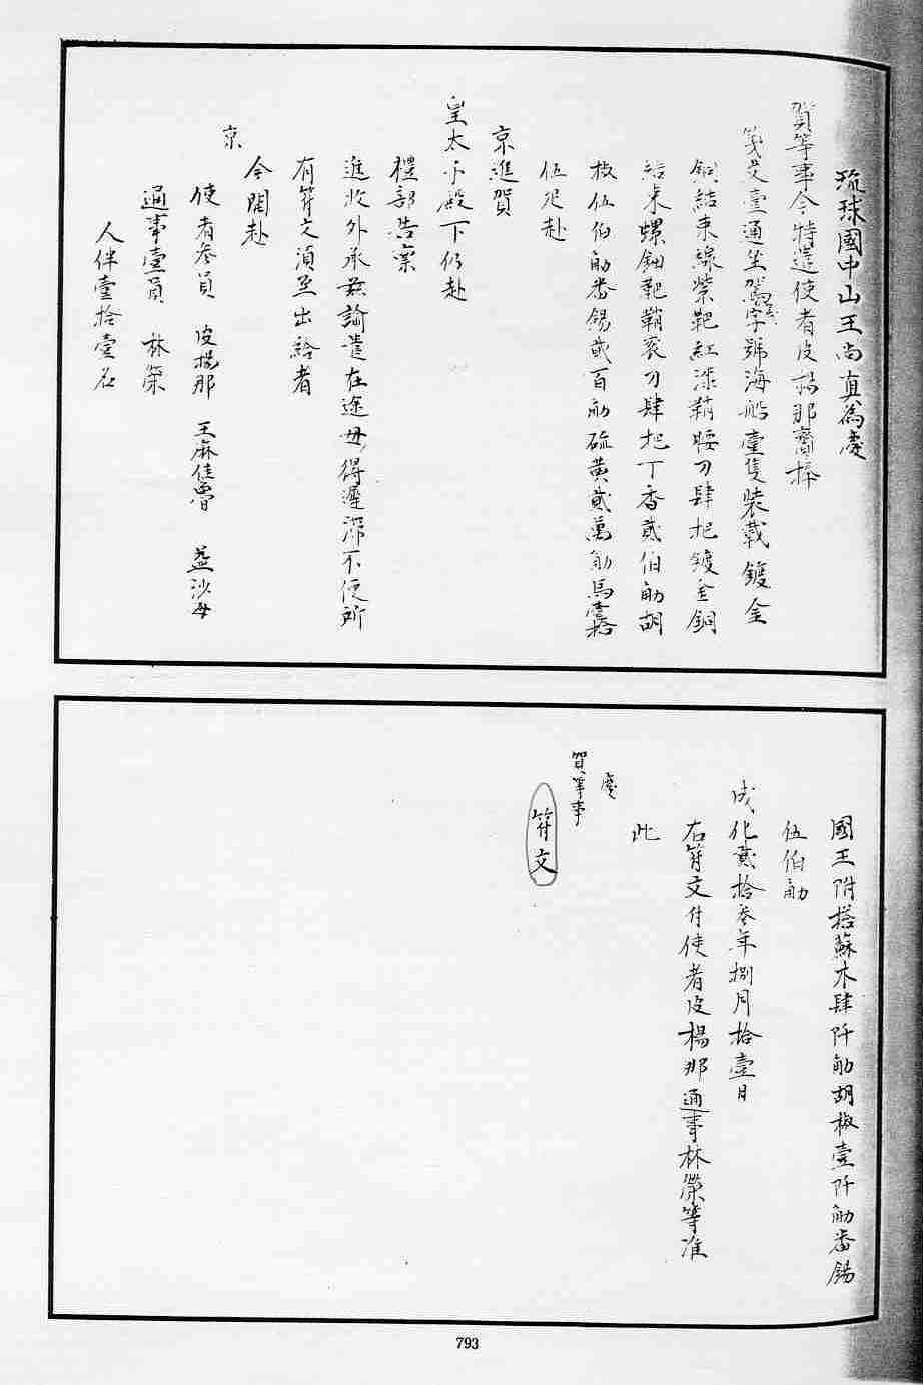 琉球國中山王尚真為慶
賀等事今特遣使者皮揚那齎捧
箋文壹通坐駕字號海船壹隻裝載鍍金
銅結束線縈靶紅漆鞘腰刀肆把鍍金銅
結束螺鈿靶鞘袞刀肆把丁香貳伯觔胡
椒伍伯觔番錫貳百觔硫黃貳萬觔馬
伍疋赴
京進賀
皇太子殿下仍赴
禮部告稟
進收外承無論遣在途毋得遲滯不便所
有符文須至出給者
今開赴
京
使者叁員 皮揚那 王麻佳魯 益沙毋
通事壹員 林榮
人伴壹拾壹名
國王附搭蘇木肆阡觔胡椒壹阡觔番錫
伍伯觔
成化貳拾叁年捌月拾壹日
右符文付使者皮楊那通事林榮等准
此
慶
賀等事
符文
793